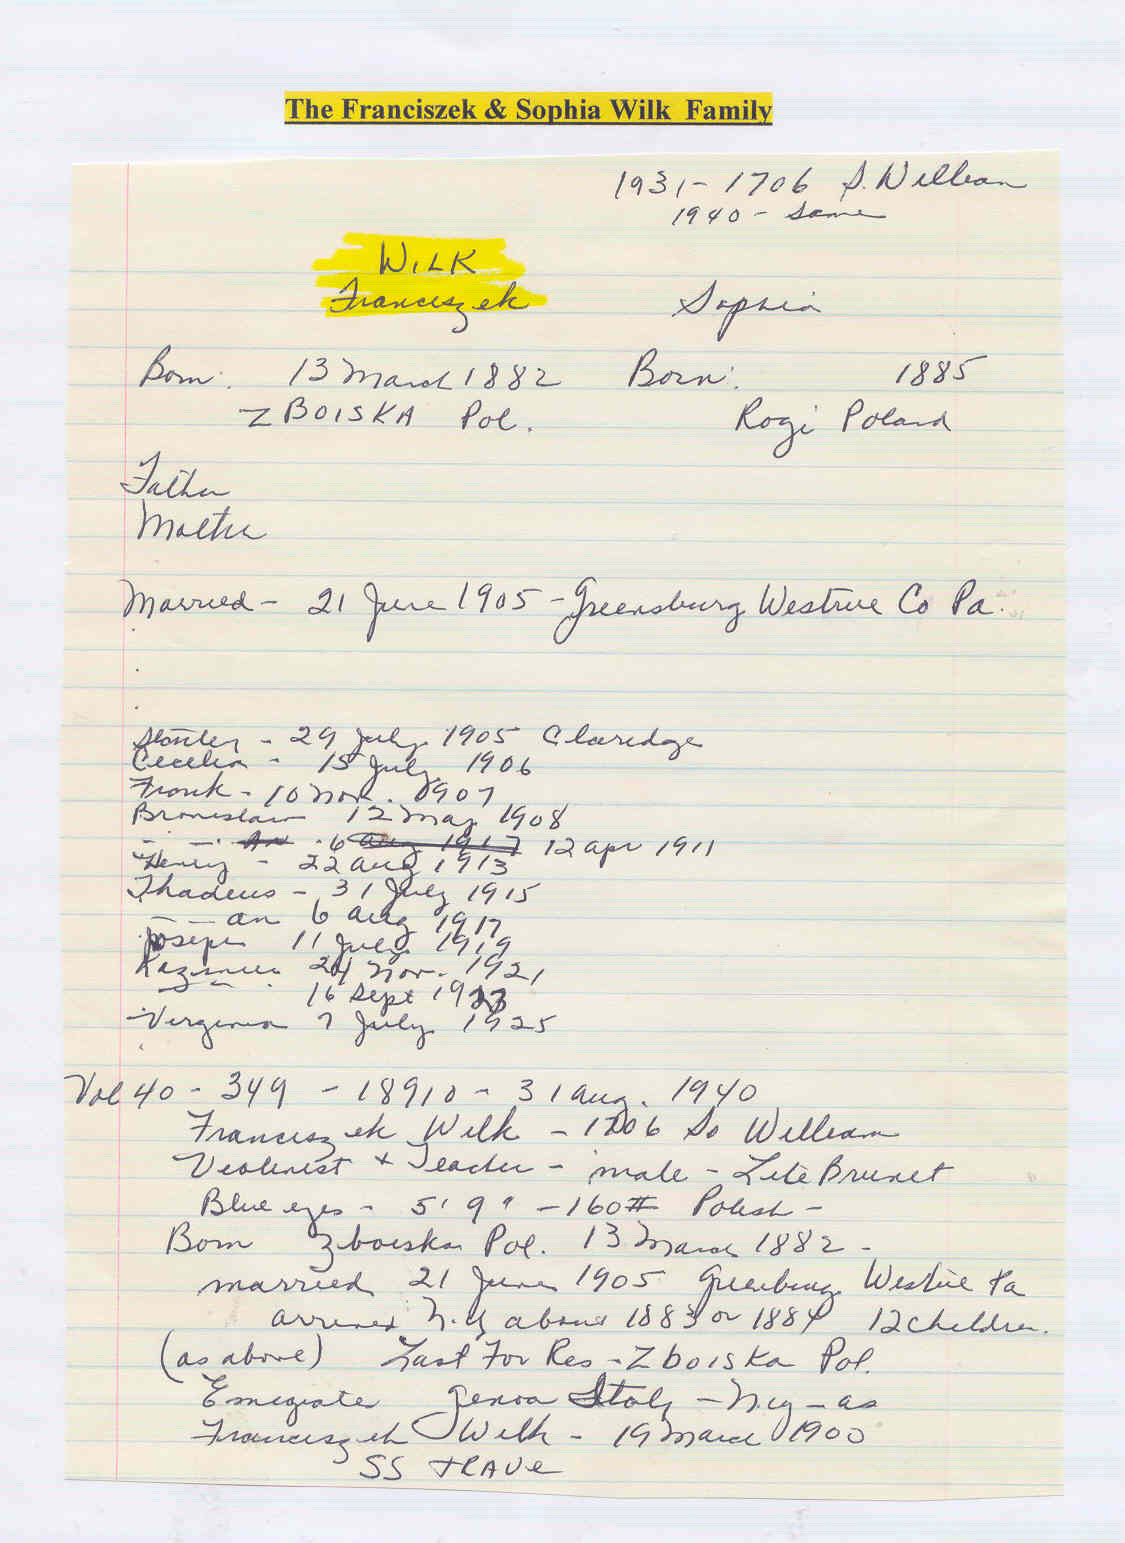 The Franciszek & Sophia Wilk Family
1931 - 1706 S. William
1940 - Same
WILK
Franciszek Sophia
Born: 13 March 1882 Born: 1885
ZBOISKA Pol. Rogi Poland
Father
Mother
Married - 21 June 1905 - Greensburg Co Pa.
Stanley - 29 July 1905 Claridge
Cecelia - 15 July 1906
Frank - 10 Nov. 1907
Bronislaw 12 May 1908
6 Aug 1917 12 Apr 1911
Henry - 22 Aug 1913
Thadeus - 31 July 1915
- - an 6 Aug 1917
Joseph 11 July 1919
Kazimier 24 Nov. 1921
16 Sept 1923
Virginia 7 July 1925
Vol 40 - 349 - 18910 - 31 Aug. 1940
Franciszek Wilk - 1706 So William
Violinist + Teacher - male - Lite Brunet
Blue eyes - 5' 9" - 160# Polish -
Born Zboiska Pol. 13 March 1882 -
married 21 June 1905 Pa
arrived N.Y about 1883 or 1884 12 children.
(as above) Last For Res - Zboiska Pol.
Emigrate Genoa Italy - N.Y - as
Franciszek Wilk - 19 March 1900
SS TRAVE